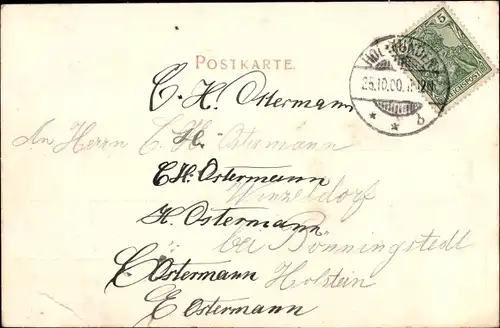 POSTKARTE.
25.10.00.
5
C. H. Ostermann
An Herrn C. H. Ostermann
H.
C.H. Ostermann
Winzeldorf
H. Ostermann
bei Bönningstedt
C Ostermann Holstein
E Ostermann
* * b